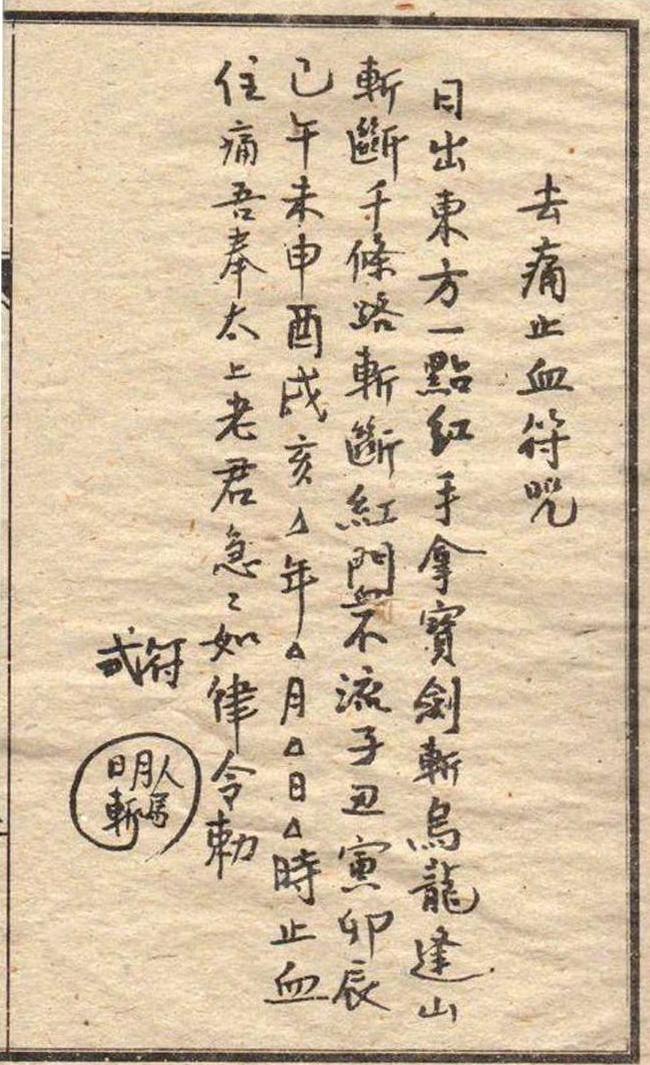 去痛止血符咒
日出東方一點紅手拿寶劍斬烏龍逢山
斬斷千條路斬斷紅門血不流子丑寅卯辰
巳午未申酉戌亥△年△月△日△時止血
住痛吾奉太上老君急〻如律令勅
符式
人馬
明
日斬